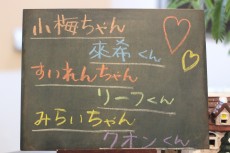 小梅ちゃん
來希くん
すいれんちゃん
リーフくん
みらいちゃん
クオンくん